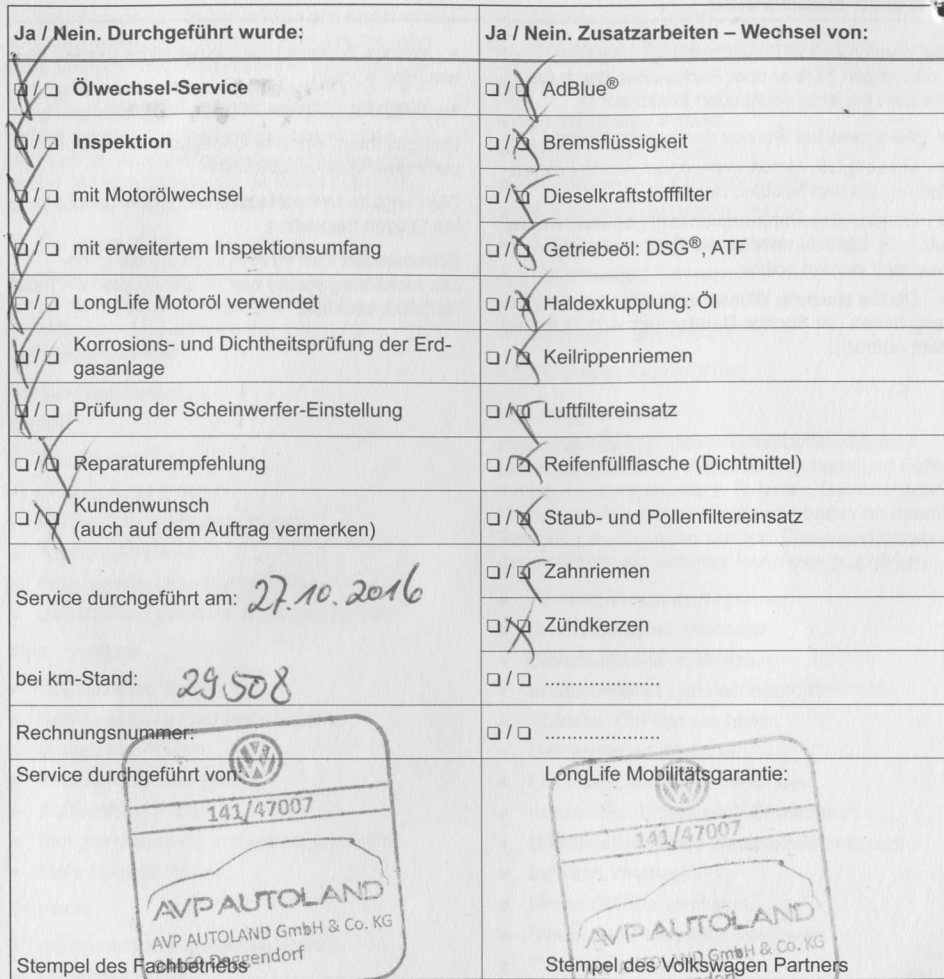 Ja / Nein. Durchgeführt wurde:
❏ / ❏ Ölwechsel-Service
❏ / ❏ Inspektion
❏ / ❏ mit Motorölwechsel
❏ / ❏ mit erweitertem Inspektionsumfang
❏ / ❏ LongLife Motoröl verwendet
❏ / ❏ Korrosions- und Dichtheitsprüfung der Erd-
gasanlage
❏ / ❏ Prüfung der Scheinwerfer-Einstellung
❏ / ❏ Reparaturempfehlung
❏ / ❏ Kundenwunsch
(auch auf dem Auftrag vermerken)
Service durchgeführt am: 27.10.2016
bei km-Stand: 29508
Rechnungsnummer:
Service durchgeführt von:
141/47007
AVP AUTOLAND
AVP AUTOLAND GmbH & Co. KG
Deggendorf
Stempel des Fachbetriebs
Ja / Nein. Zusatzarbeiten – Wechsel von:
❏ / ❏ AdBlue®
❏ / ❏ Bremsflüssigkeit
❏ / ❏ Dieselkraftstofffilter
❏ / ❏ Getriebeöl: DSG®, ATF
❏ / ❏ Haldexkupplung: Öl
❏ / ❏ Keilrippenriemen
❏ / ❏ Luftfiltereinsatz
❏ / ❏ Reifenfüllflasche (Dichtmittel)
❏ / ❏ Staub- und Pollenfiltereinsatz
❏ / ❏ Zahnriemen
❏ / ❏ Zündkerzen
❏ / ❏ ....................
❏ / ❏ ....................
LongLife Mobilitätsgarantie:
141/47007
AVP AUTOLAND
AVP AUTOLAND GmbH & Co. KG
Stempel des Volkswagen Partners